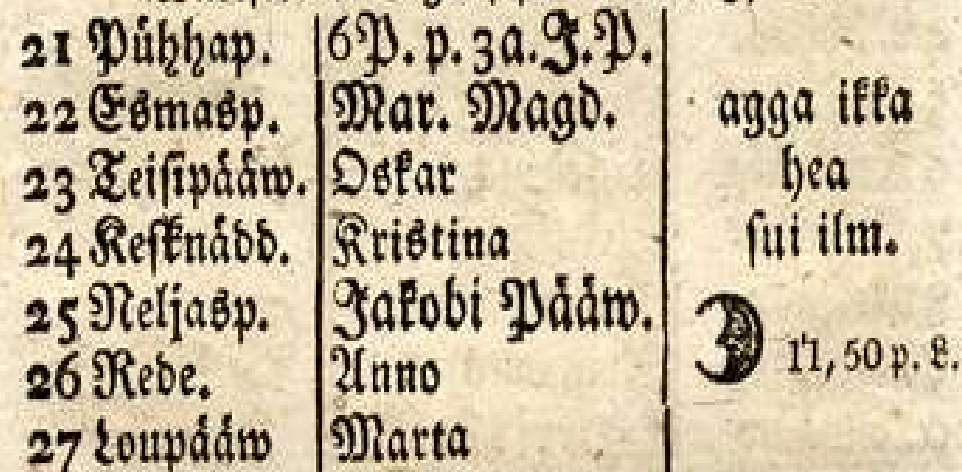 21 Pühhap. 6 P. p. 3a. J. P.
22 Esmasp. Mar. Magd. agga ikka
23 Teisipååw. Oskar hea
24 Keſknådd. Kristina ſui ilm.
25 Neljasp. Jakobi Pååw.
26 Rede. Anno 11, 50 p. L.
27 Loupååw Marta